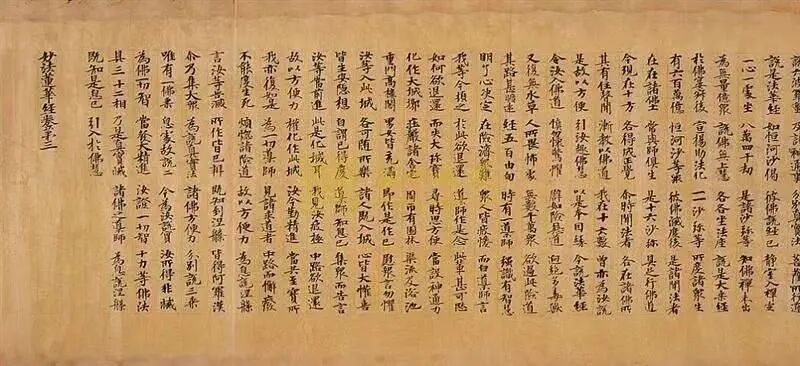 說是法華經 如恒河沙偈 彼佛說經已 靜室入禪定
一心一處坐 八萬四千劫 是諸沙彌等 知佛禪未出
為無量億眾 說佛無上慧 各各坐法座 說是大乘經
於佛宴寂後 宣揚助法化 一一沙彌等 所度諸眾生
有六百萬億 恒河沙等眾 彼佛滅度後 是諸聞法者
在在諸佛土 常與師俱生 是十六沙彌 具足行佛道
今現在十方 各得成正覺 爾時聞法者 各在諸佛所
其有住聲聞 漸教以佛道 我在十六數 曾亦為汝說
是故以方便 引汝趣佛慧 以是本因緣 今說法華經
令汝入佛道 慎勿懷驚懼 譬如險惡道 迥絕多毒獸
又復無水草 人所畏怖處 無數千萬眾 欲過此險道
其路甚曠遠 經五百由旬 時有一導師 強識有智慧
明了心決定 在險濟眾難 眾人皆疲惓 而白導師言
我等今頓乏 於此欲退還 導師作是念 此輩甚可愍
如何欲退還 而失大珍寶 尋時思方便 當設神通力
化作大城郭 莊嚴諸舍宅 周匝有園林 渠流及浴池
重門高樓閣 男女皆充滿 即作是化已 慰眾言勿懼
汝等入此城 各可隨所樂 諸人既入城 心皆大歡喜
皆生安隱想 自謂已得度 導師知息已 集眾而告言
汝等當前進 此是化城耳 我見汝疲極 中路欲退還
故以方便力 權化作此城 汝今勤精進 當共至寶所
我亦復如是 為一切導師 見諸求道者 中路而懈廢
不能度生死 煩惱諸險道 故以方便力 為息說涅槃
言汝等苦滅 所作皆已辦 既知到涅槃 皆得阿羅漢
爾乃集大眾 為說真實法 諸佛方便力 分別說三乘
唯有一佛乘 息處故說二 今為汝說實 汝所得非滅
為佛一切智 當發大精進 汝證一切智 十力等佛法
具三十二相 乃是真實滅 諸佛之導師 為息說涅槃
既知是息已 引入於佛慧
妙法蓮華經卷第三